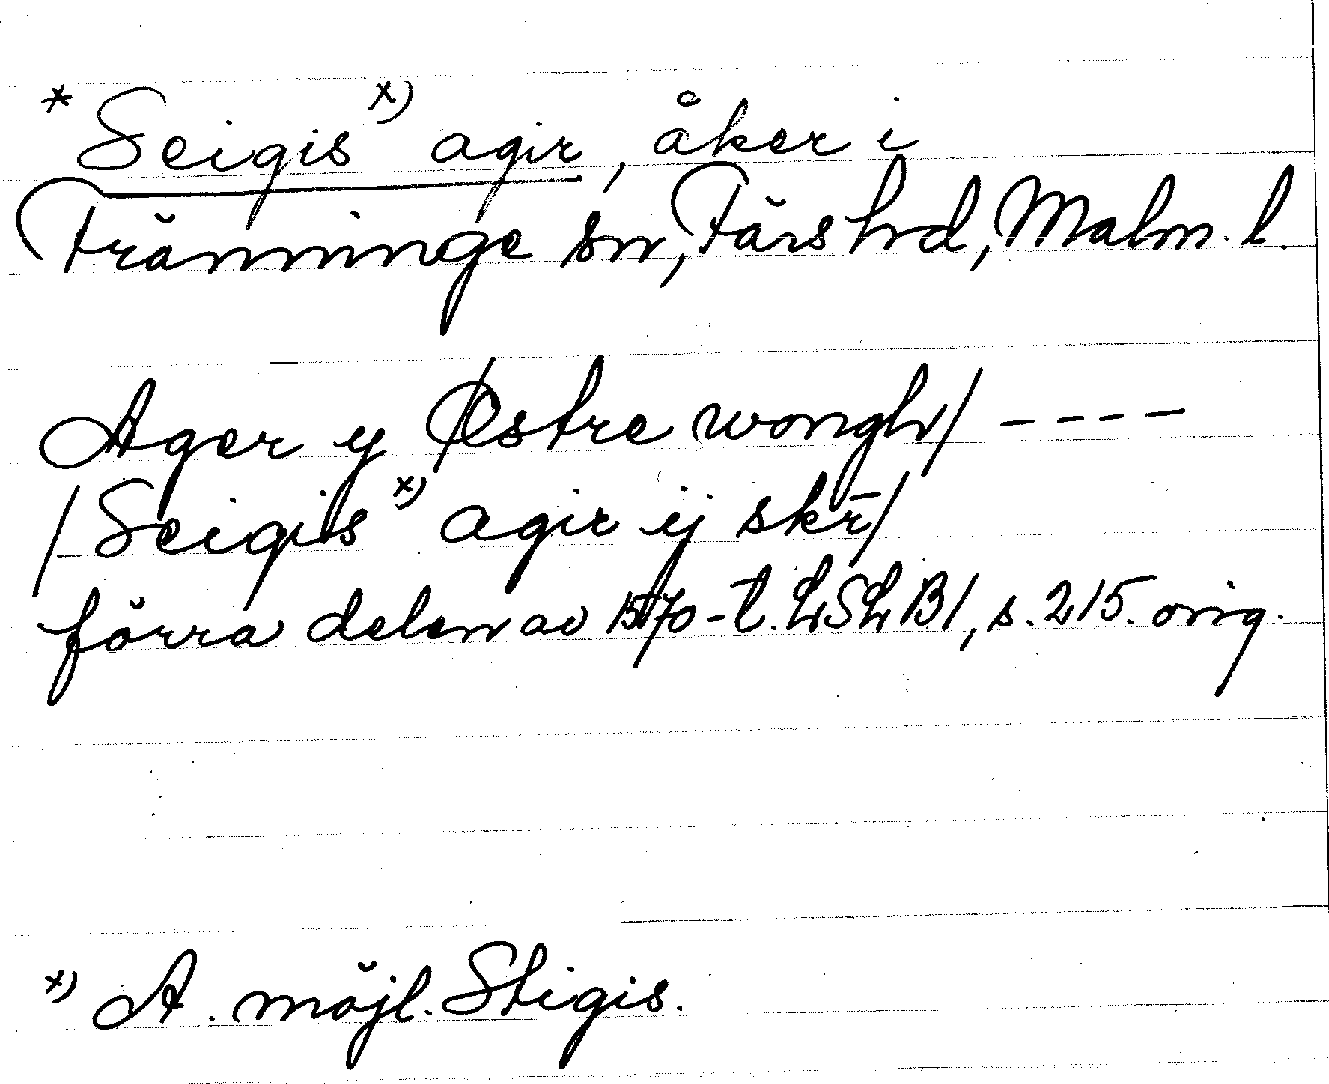 * Seigis x) agir, åker i
Fränninge sn, Färs hd, Malm. l.
Ager y /Østre wongh/ ----
/Seigis x) agir ij skr̄/
förra delen av 1570-t. LSLB1, s. 215. orig.
x) A. möjl. Stigis.